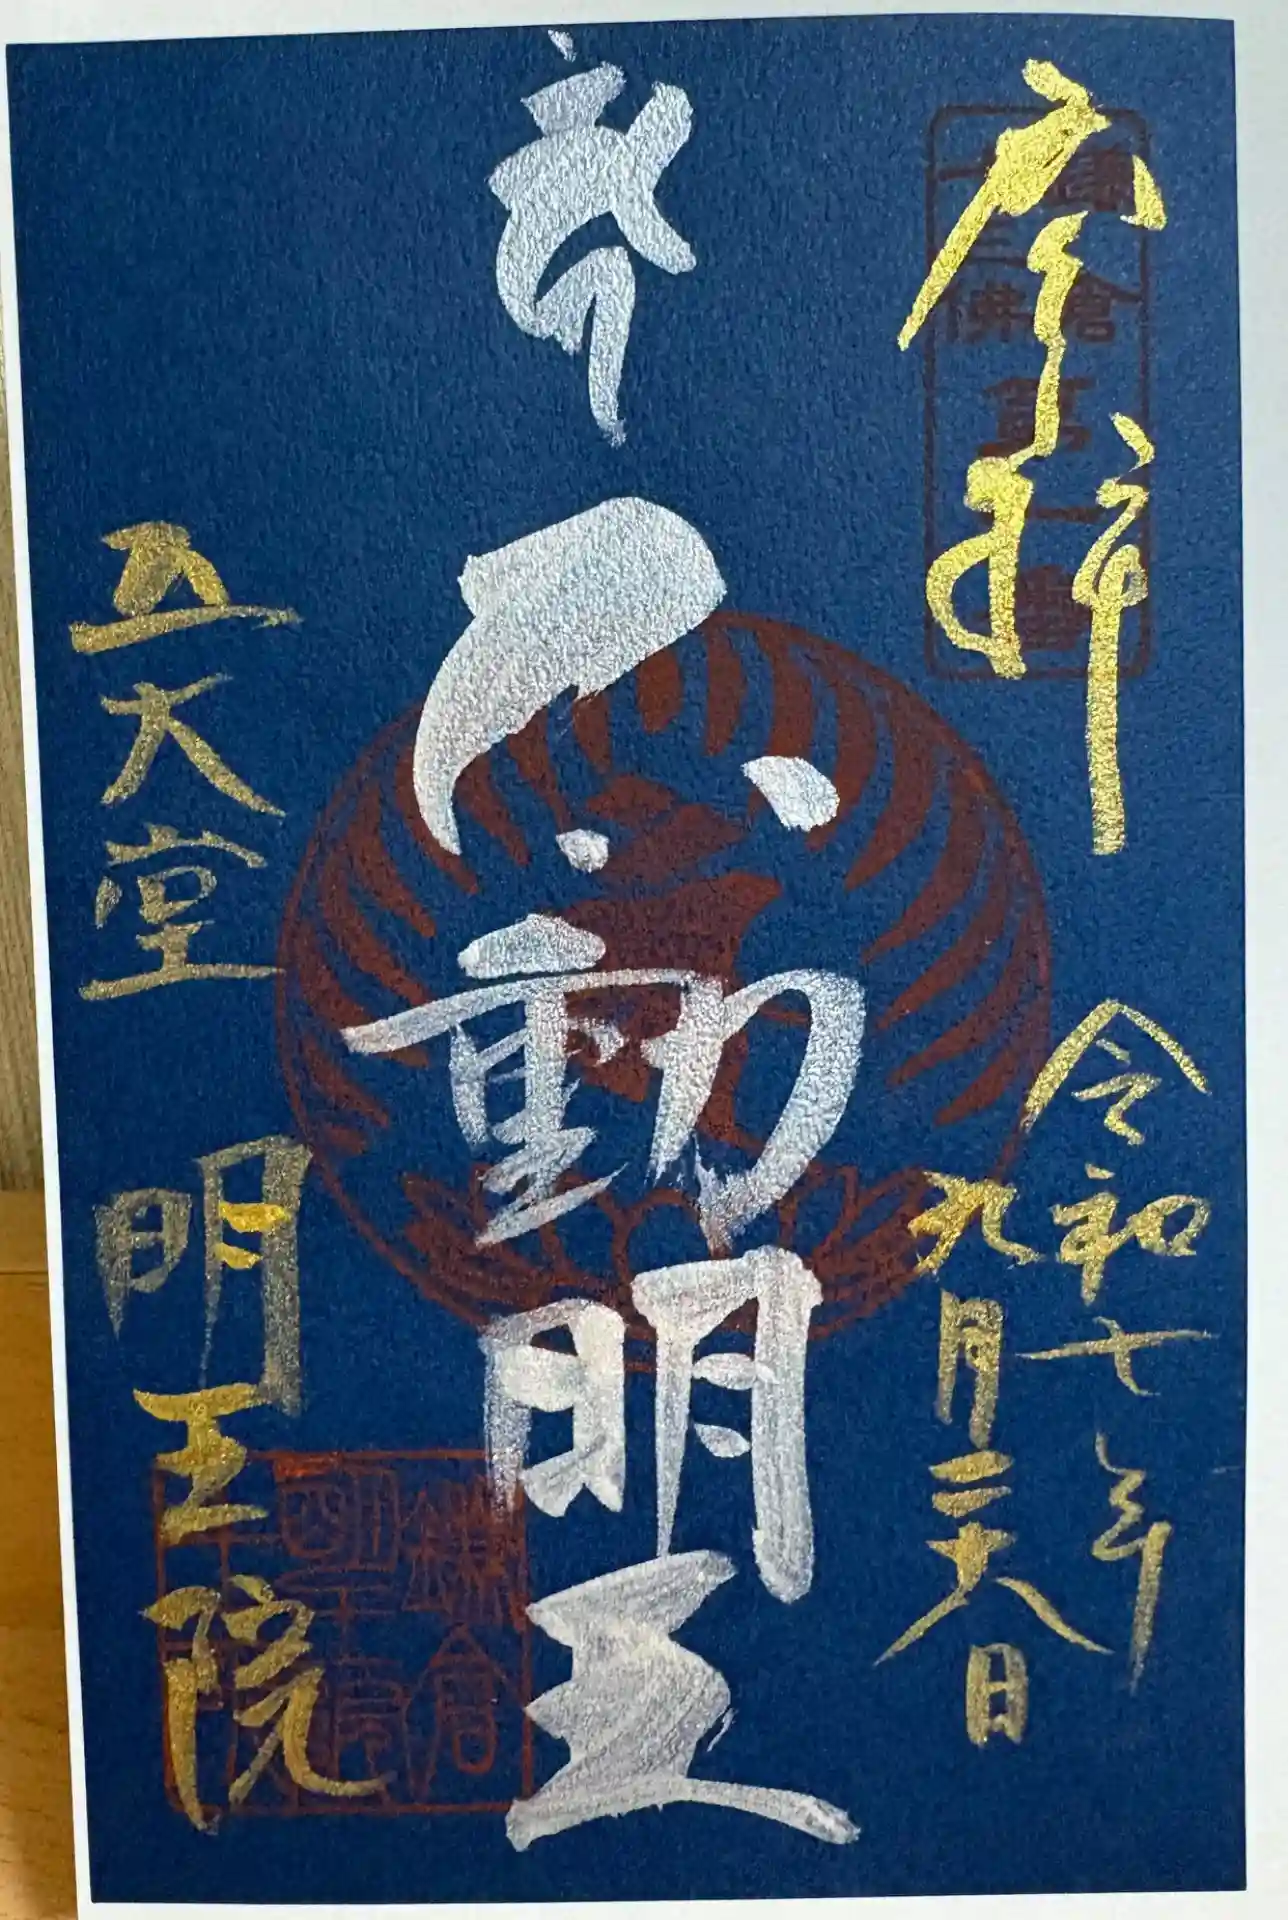 奉拝
鎌倉
十三佛
第一番
令和七年
九月二十八日
不動明王
五大堂
明王院
鎌倉
明王院